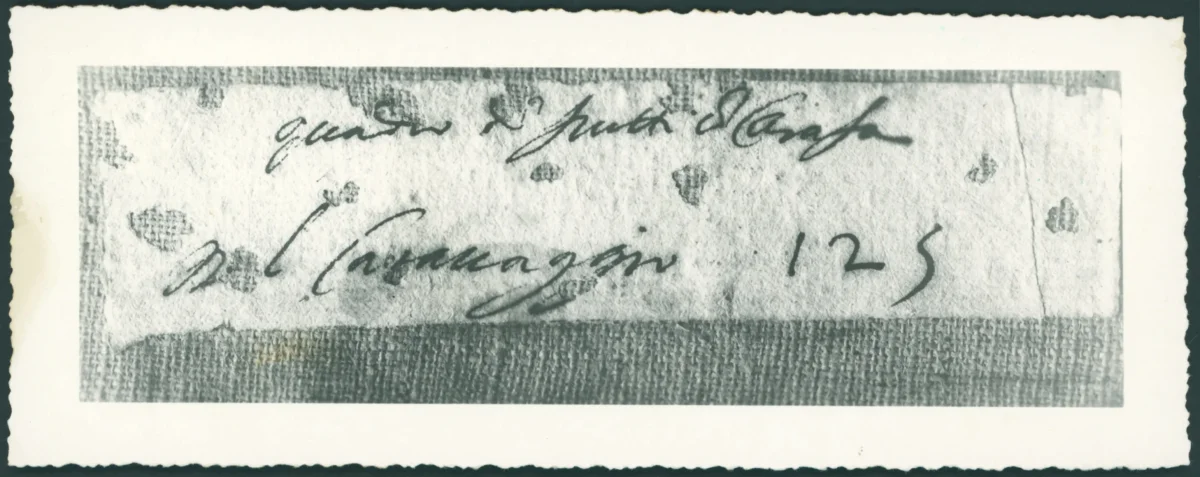 quadro di putti di Carafa
del Caravaggio 125